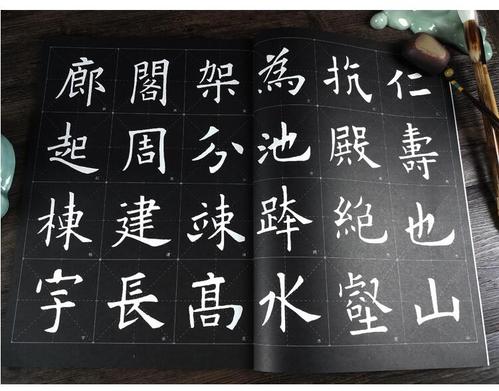 仁壽也山
抗殿絶壑
為池跨水
架分竦髙
閣周建長
廊起棟宇